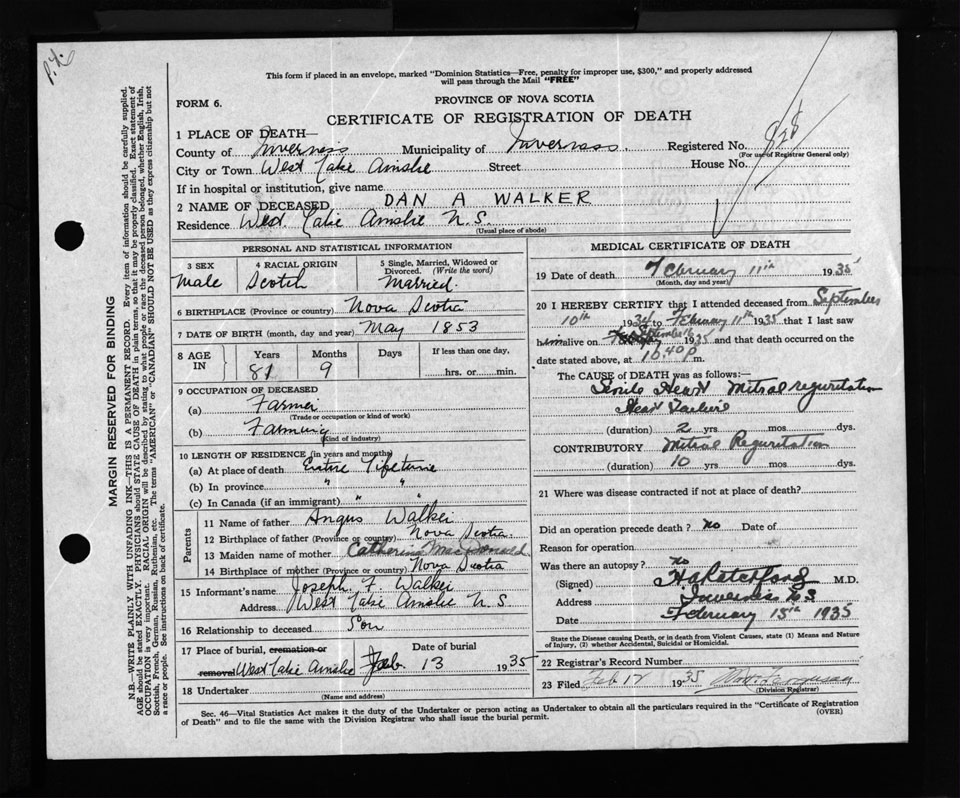 This form if placed in an envelope, marked "Dominion Statistics—Free, penalty for improper use, $300," and properly addressed
will pass through the Mail "FREE"
FORM 6.
PROVINCE OF NOVA SCOTIA
CERTIFICATE OF REGISTRATION OF DEATH
1 PLACE OF DEATH—
County of Inverness Municipality of Inverness. Registered No. 828
(For use of Registrar General only)
City or Town West Lake Ainslie Street House No.
If in hospital or institution, give name
2 NAME OF DECEASED DAN A WALKER
Residence West Lake Ainslie N.S.
(Usual place of abode)
PERSONAL AND STATISTICAL INFORMATION
3 SEX 4 RACIAL ORIGIN 5 Single, Married, Widowed or Divorced. (Write the word)
Male Scotch Married.
6 BIRTHPLACE (Province or country) Nova Scotia
7 DATE OF BIRTH (month, day and year) May 1853
8 AGE IN Years Months Days If less than one day,
81 9 hrs. or min.
9 OCCUPATION OF DECEASED
(a) Farmer
(Trade or occupation or kind of work)
(b) Farming
(Kind of industry)
10 LENGTH OF RESIDENCE (in years and months)
(a) At place of death Entire Lifetime
(b) In province " "
(c) In Canada (if an immigrant) " "
Parents
11 Name of father Angus Walker
12 Birthplace of father (Province or country) Nova Scotia
13 Maiden name of mother Catherine MacDonald
14 Birthplace of mother (Province or country) Nova Scotia
15 Informant's name Joseph F. Walker
Address West Lake Ainslie N.S.
16 Relationship to deceased Son
17 Place of burial, cremation or removal Date of burial
West Lake Ainslie Feb. 13 1935
18 Undertaker
(Name and address)
MEDICAL CERTIFICATE OF DEATH
19 Date of death February 11th 1935
(Month, day and year)
20 I HEREBY CERTIFY that I attended deceased from September
10th 1934 to February 11th 1935 that I last saw
him alive on September 1935 and that death occurred on the
date stated above, at 10.40 p m.
The CAUSE OF DEATH was as follows:—
Senile Heart Mitral reguritation
Heart Failure
(duration) 2 yrs mos dys.
CONTRIBUTORY Mitral Reguritation
(duration) 10 yrs mos dys.
21 Where was disease contracted if not at place of death?
Did an operation precede death? No Date of
Reason for operation
Was there an autopsy? No
(Signed) M.D.
Address Inverness N.S
Date February 15th 1935
State the Disease causing Death, or in death from Violent Causes, state (1) Means and Nature
of Injury, (2) whether Accidental, Suicidal or Homicidal.
22 Registrar's Record Number
23 Filed Feb 12 1935 Ferguson
(Division Registrar)
Sec. 46—Vital Statistics Act makes it the duty of the Undertaker or person acting as Undertaker to obtain all the particulars required in the "Certificate of Registration
of Death" and to file the same with the Division Registrar who shall issue the burial permit. (OVER)
MARGIN RESERVED FOR BINDING
N.B.—WRITE PLAINLY WITH UNFADING INK—THIS IS A PERMANENT RECORD. Every item of information should be carefully supplied.
AGE should be stated EXACTLY. PHYSICIANS should STATE CAUSE OF DEATH in plain terms, so that it may be properly classified. Exact statement of
OCCUPATION is very important. RACIAL ORIGIN will be described by stating to what people or race the deceased person belonged, whether English, Irish,
Scottish, French, German, Russian, Ruthenian, etc. The terms "AMERICAN" or "CANADIAN" SHOULD NOT BE USED as they express citizenship but not
a race or people. See instructions on back of certificate.